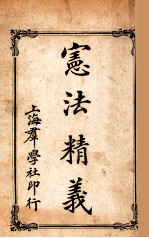 憲法精義
上海羣學社印行